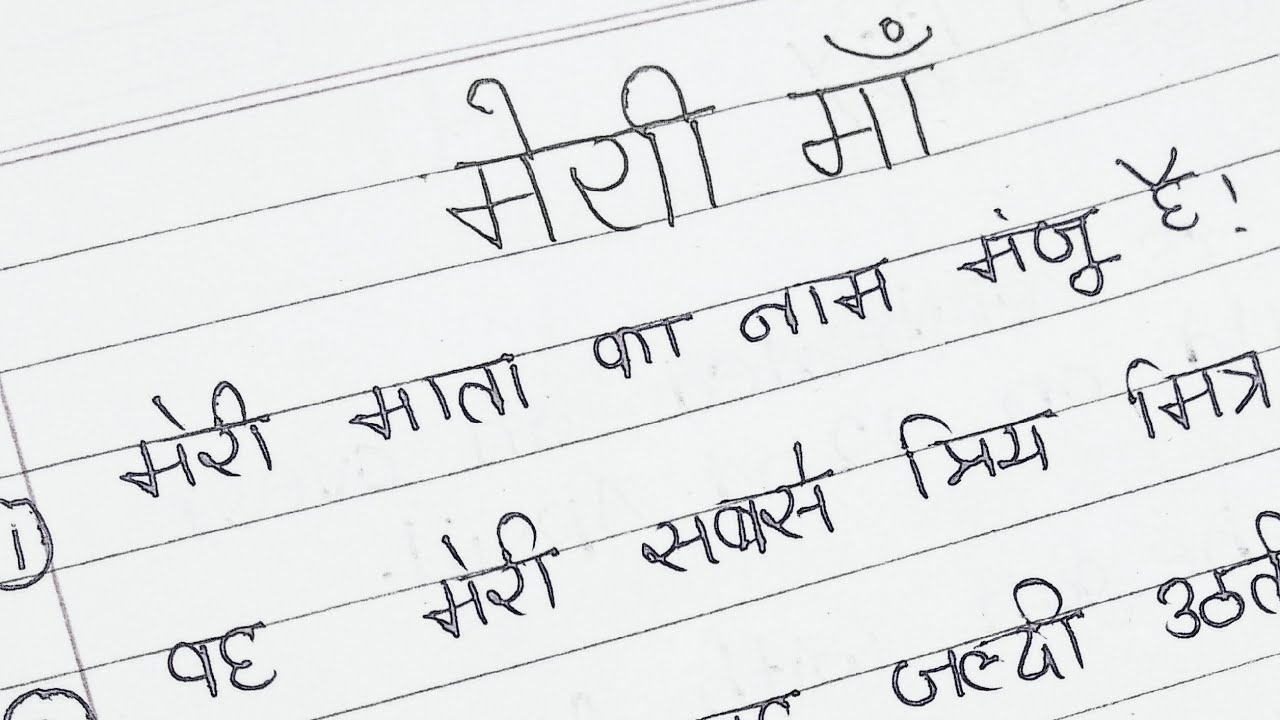 मेरी माँ
① मेरी माता का नाम मंजू है!
वह मेरी सबसे प्रिय मित्र
जल्दी उठती